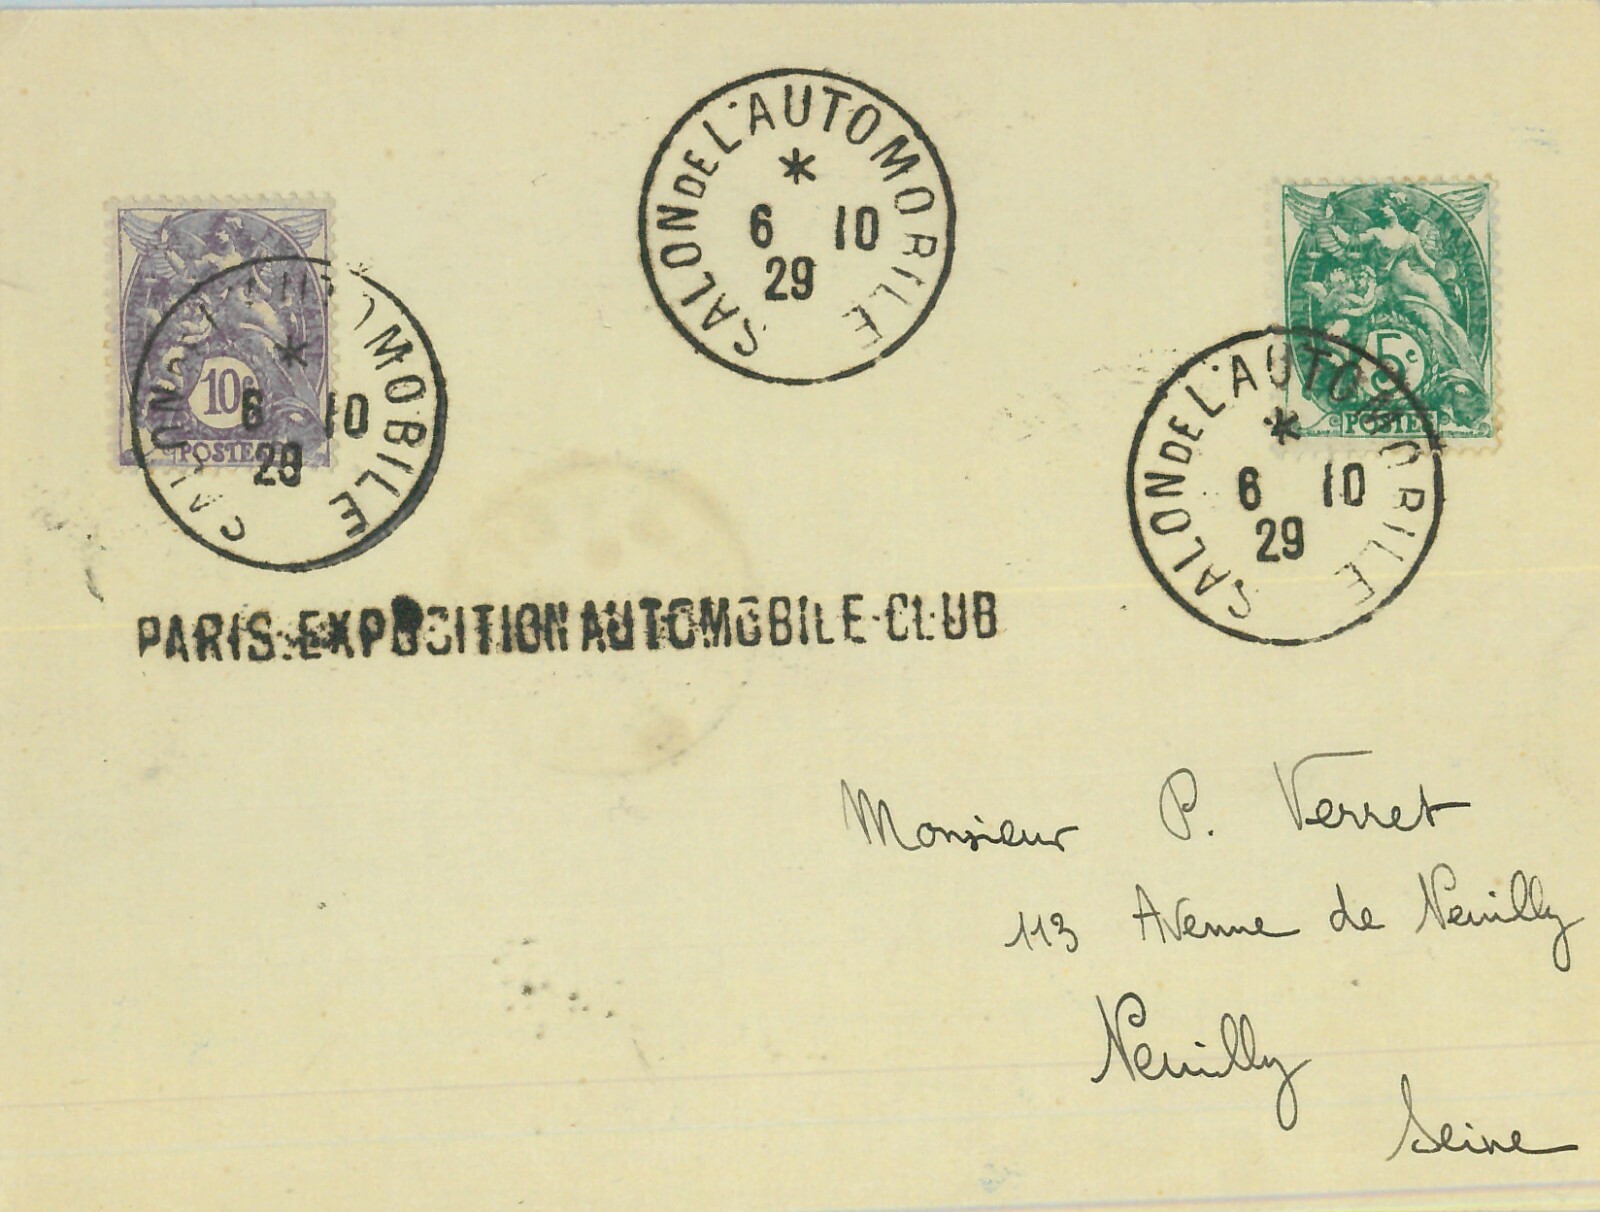 SALON DE L'AUTOMOBILE
* 
6 10
29
10c
POSTES
SALON MOBILE
*
6 10
29
5c
POSTES
SALON DE L'AUTOMOBILE
*
6 10
29
PARIS-EXPOSITION AUTOMOBILE-CLUB
Monsieur P. Verret
113 Avenue de Neuilly
Neuilly
Seine